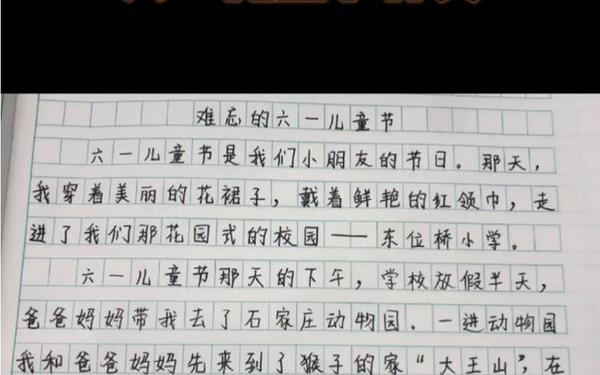 难忘的六一儿童节
六一儿童节是我们小朋友的节日。那天，
我穿着美丽的花裙子，戴着鲜艳的红领巾，走
进了我们那花园式的校园——东位桥小学。
六一儿童节那天的下午，学校放假半天，
爸爸妈妈带我去了石家庄动物园．一进动物园
我和爸爸妈妈先来到了猴子的家“大王山”，在